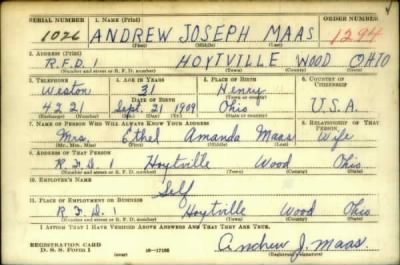 SERIAL NUMBER 1. NAME (Print) ORDER NUMBER
1026 ANDREW JOSEPH MAAS 1294
(First) (Middle) (Last)
2. ADDRESS (Print)
R.F.D. 1 HOYTVILLE WOOD OHIO
(Number and street or R. F. D. number) (Town) (County) (State)
3. TELEPHONE 4. AGE IN YEARS 5. PLACE OF BIRTH 6. COUNTRY OF CITIZENSHIP
Weston 31 Henry
DATE OF BIRTH (Town or county)
4221 Sept. 21 1909 Ohio U.S.A.
(Exchange) (Number) (Mo.) (Day) (Yr.) (State or country)
7. NAME OF PERSON WHO WILL ALWAYS KNOW YOUR ADDRESS 8. RELATIONSHIP OF THAT PERSON
Mrs. Ethel Amanda Maas Wife
(Mr., Mrs., Miss) (First) (Middle) (Last)
9. ADDRESS OF THAT PERSON
R.F.D. 1 Hoytville Wood Ohio
(Number and street or R. F. D. number) (Town) (County) (State)
10. EMPLOYER'S NAME
Self
11. PLACE OF EMPLOYMENT OR BUSINESS
R.F.D. 1 Hoytville Wood Ohio
(Number and street or R. F. D. number) (Town) (County) (State)
I AFFIRM THAT I HAVE VERIFIED ABOVE ANSWERS AND THAT THEY ARE TRUE.
REGISTRATION CARD
D. S. S. FORM 1 (over) 16-17105 Andrew J. Maas.
(Registrant's signature)